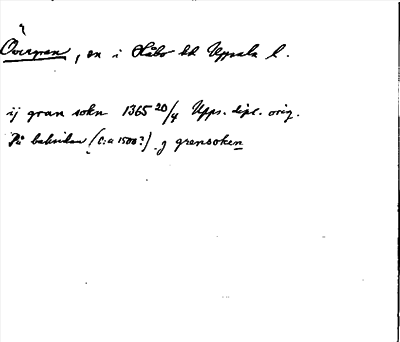 Övergran, sn i Håbo hd Uppsala l.
ij gran sokn 1365 20/4 Upps. dipl. orig.
På baksidan (c:a 1500?) j grensoken